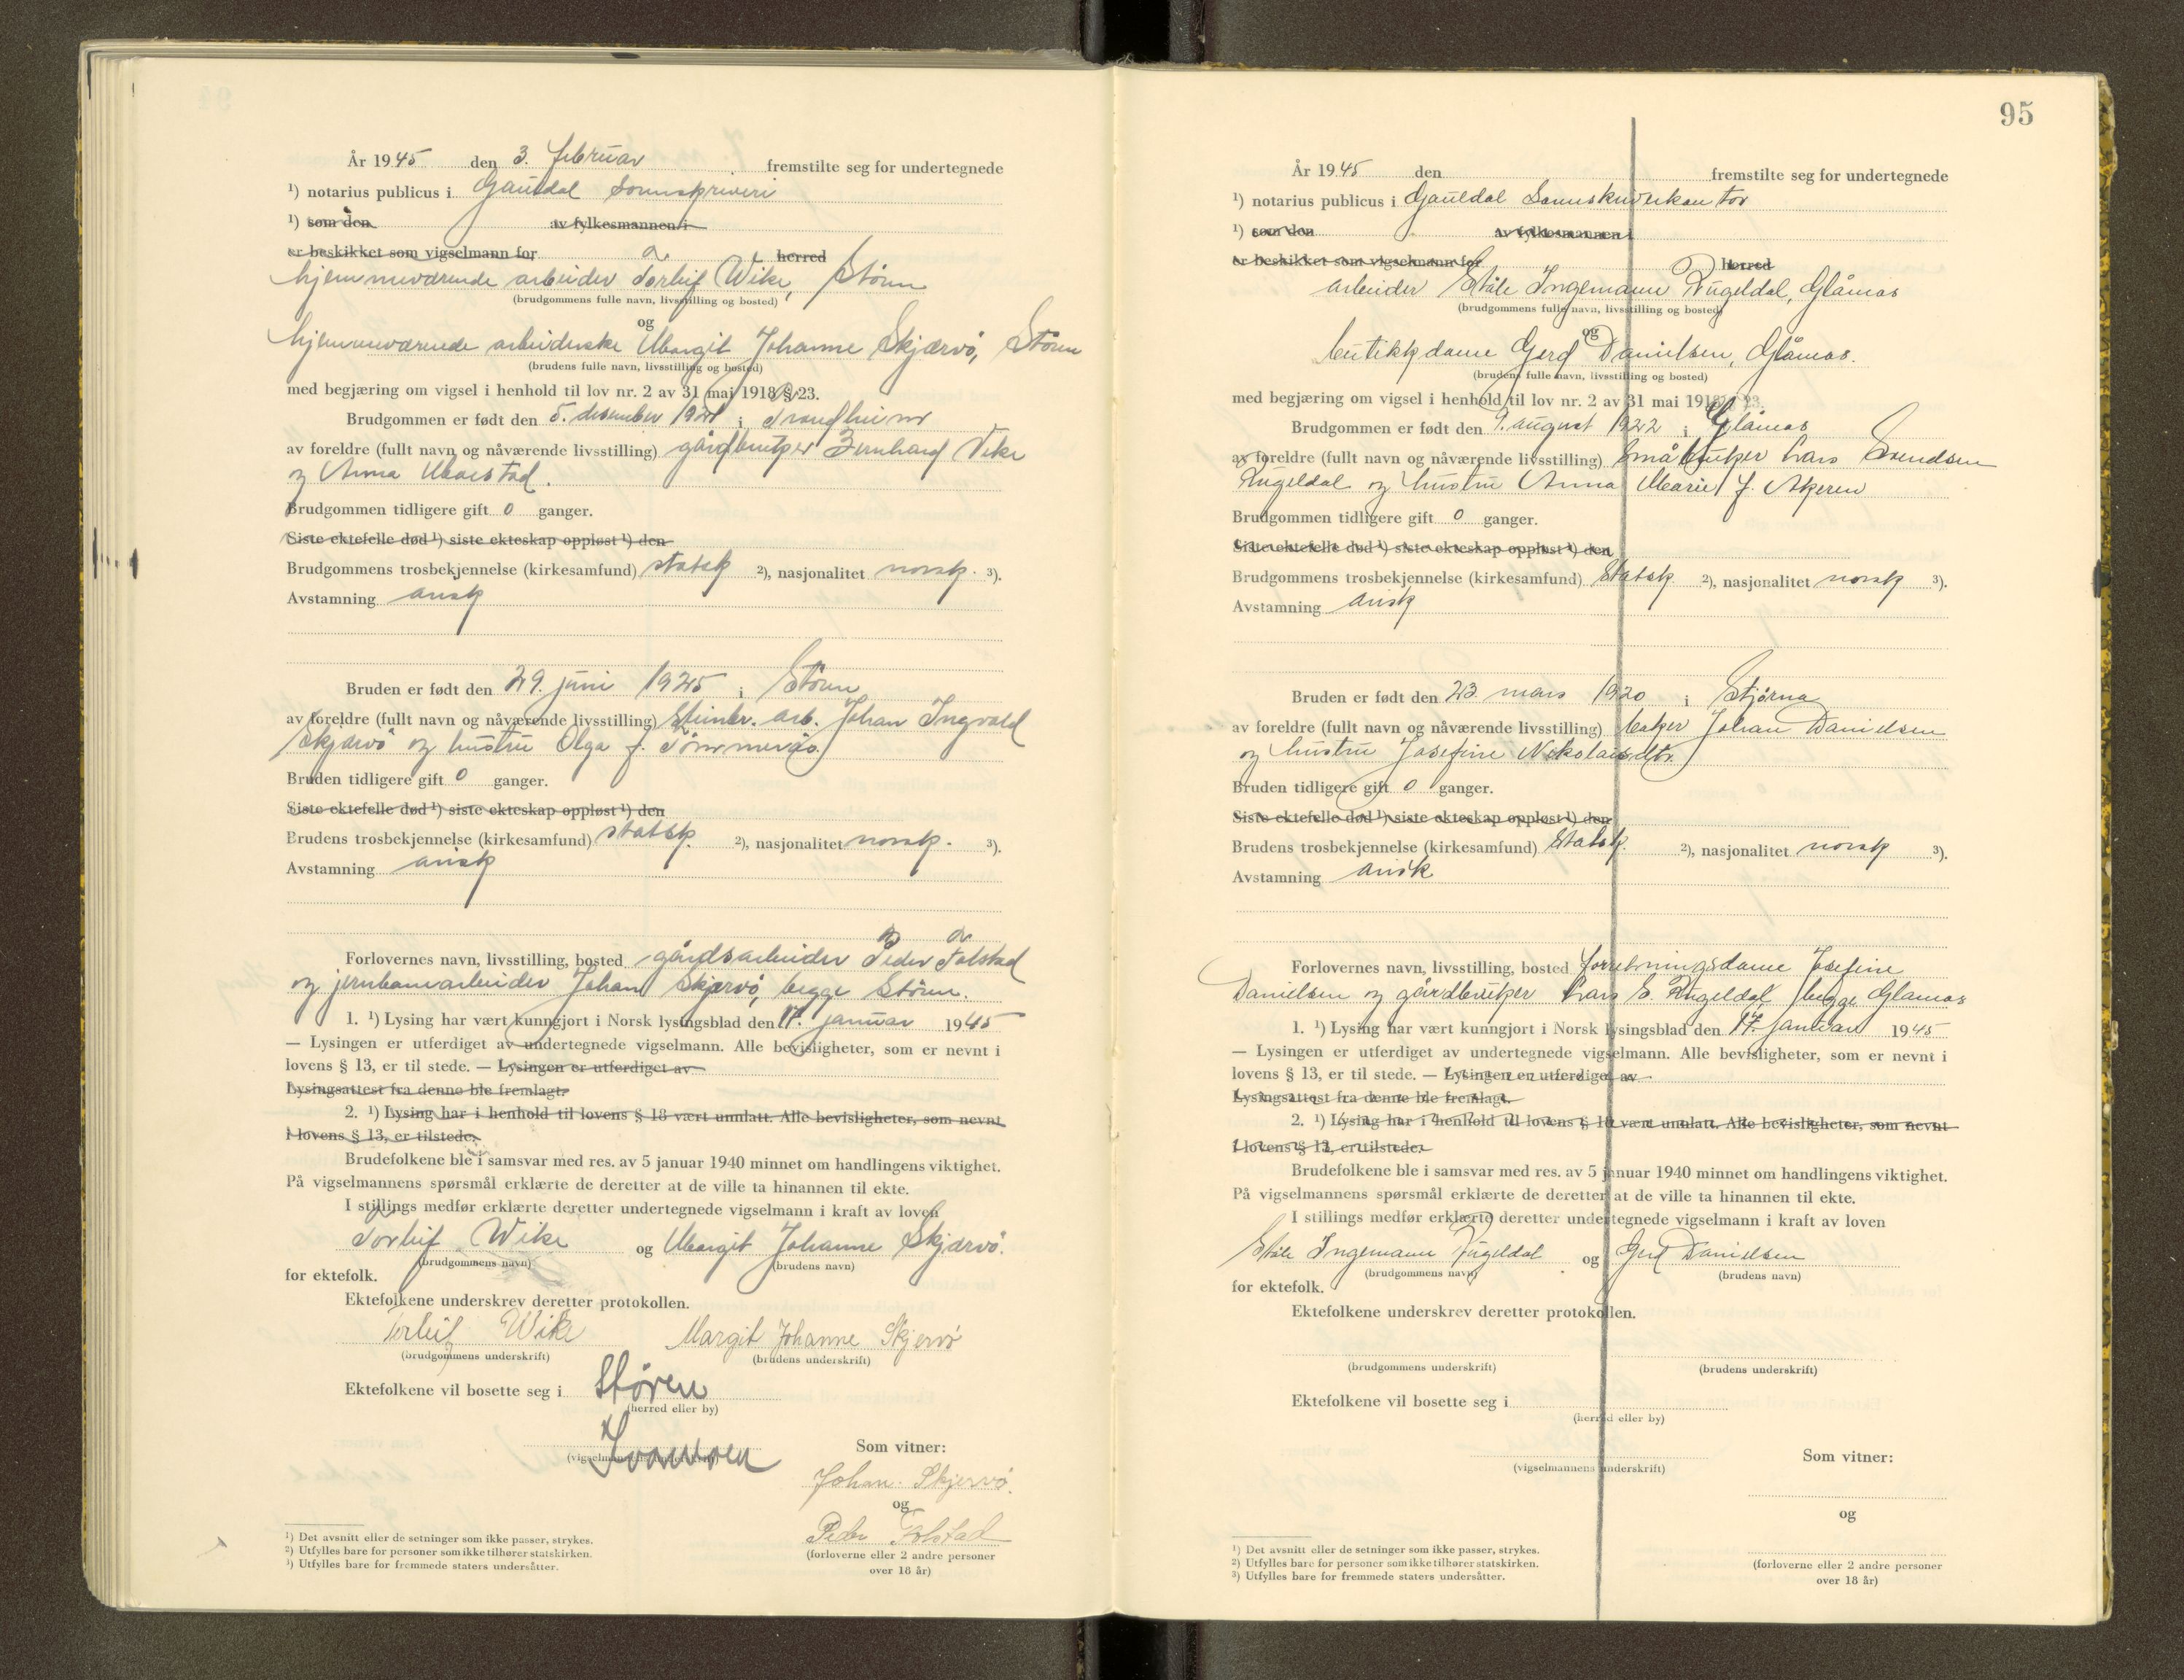 År 1945 den 3. februar fremstilte seg for undertegnede
¹) notarius publicus i Gauldal Sorenskriveri
¹) som den av fylkesmannen i
er beskikket som vigselmann for herred
hjemmeværende arbeider Torleif Wike, Støren
(brudgommens fulle navn, livsstilling og bosted)
og
hjemmeværende arbeiderske Margit Johanne Skjærvø, Støren
(brudens fulle navn, livsstilling og bosted)
med begjæring om vigsel i henhold til lov nr. 2 av 31 mai 1918 § 23.
Brudgommen er født den 5. desember 1921 i Trondheim
av foreldre (fullt navn og nåværende livsstilling) gårdbruker Bernhard Vike
og Anna
Brudgommen tidligere gift 0 ganger.
Siste ektefelle død ¹) siste ekteskap oppløst ¹) den
Brudgommens trosbekjennelse (kirkesamfund) statsk ²), nasjonalitet norsk. ³).
Avstamning arisk
Bruden er født den 29. juni 1925 i Støren
av foreldre (fullt navn og nåværende livsstilling) Steinbr. arb. Johan Ingvald
Skjærvø og hustru Olga f.
Bruden tidligere gift 0 ganger.
Siste ektefelle død ¹) siste ekteskap oppløst ¹) den
Brudens trosbekjennelse (kirkesamfund) statsk. ²), nasjonalitet norsk. ³).
Avstamning arisk
Forlovernes navn, livsstilling, bosted gårdsarbeider Peder Folstad
og jernbanearbeider Johan Skjærvø, begge Støren.
1. ¹) Lysing har vært kunngjort i Norsk lysingsblad den 17. januar 1945
— Lysingen er utferdiget av undertegnede vigselmann. Alle bevisligheter, som er nevnt i
lovens § 13, er til stede. — Lysingen er utferdiget av
Lysingsattest fra denne ble fremlagt.
2. ¹) Lysing har i henhold til lovens § 18 vært unnlatt. Alle bevisligheter, som nevnt
i lovens § 13, er tilstede.
Brudefolkene ble i samsvar med res. av 5 januar 1940 minnet om handlingens viktighet.
På vigselmannens spørsmål erklærte de deretter at de ville ta hinannen til ekte.
I stillings medfør erklærte deretter undertegnede vigselmann i kraft av loven
Torleif Wike og Margit Johanne Skjærvø.
(brudgommens navn) (brudens navn)
for ektefolk.
Ektefolkene underskrev deretter protokollen.
Torleif Wike Margit Johanne Skjervø
(brudgommens underskrift) (brudens underskrift)
Ektefolkene vil bosette seg i Støren
(herred eller by)
(vigselmannens underskrift)
Som vitner:
Johan Skjervø.
og
Peder Folstad
(forloverne eller 2 andre personer
over 18 år)
¹) Det avsnitt eller de setninger som ikke passer, strykes.
²) Utfylles bare for personer som ikke tilhører statskirken.
³) Utfylles bare for fremmede staters undersåtter.
95
År 1945 den fremstilte seg for undertegnede
¹) notarius publicus i Gauldal Sorenskriverkontor
¹) som den av fylkesmannen i
er beskikket som vigselmann for herred
arbeider Ståle Ingemann Rugeldal, Glåmos
(brudgommens fulle navn, livsstilling og bosted)
og
butikkdame Gerd Danielsen, Glåmos.
(brudens fulle navn, livsstilling og bosted)
med begjæring om vigsel i henhold til lov nr. 2 av 31 mai 1918 § 23.
Brudgommen er født den 9. august 1922 i Glåmos
av foreldre (fullt navn og nåværende livsstilling) Småbruker Lars Svendsen
Rugeldal og hustru Anna Marie f. Akeren
Brudgommen tidligere gift 0 ganger.
Siste ektefelle død ¹) siste ekteskap oppløst ¹) den
Brudgommens trosbekjennelse (kirkesamfund) Statsk. ²), nasjonalitet norsk ³).
Avstamning arisk
Bruden er født den 23 mars 1920 i Stjørna
av foreldre (fullt navn og nåværende livsstilling) baker Johan Danielsen
og hustru Josefine Nikolaisdtr.
Bruden tidligere gift 0 ganger.
Siste ektefelle død ¹) siste ekteskap oppløst ¹) den
Brudens trosbekjennelse (kirkesamfund) Statsk. ²), nasjonalitet norsk ³).
Avstamning arisk
Forlovernes navn, livsstilling, bosted forretningsdame Josefine
Danielsen og gårdbruker Lars S. Rugeldal, begge Glåmos
1. ¹) Lysing har vært kunngjort i Norsk lysingsblad den 17. januar 1945
— Lysingen er utferdiget av undertegnede vigselmann. Alle bevisligheter, som er nevnt i
lovens § 13, er til stede. — Lysingen er utferdiget av
Lysingsattest fra denne ble fremlagt.
2. ¹) Lysing har i henhold til lovens § 18 vært unnlatt. Alle bevisligheter, som nevnt
i lovens § 13, er tilstede.
Brudefolkene ble i samsvar med res. av 5 januar 1940 minnet om handlingens viktighet.
På vigselmannens spørsmål erklærte de deretter at de ville ta hinannen til ekte.
I stillings medfør erklærte deretter undertegnede vigselmann i kraft av loven
Ståle Ingemann Rugeldal og Gerd Danielsen
(brudgommens navn) (brudens navn)
for ektefolk.
Ektefolkene underskrev deretter protokollen.
(brudgommens underskrift) (brudens underskrift)
Ektefolkene vil bosette seg i
(herred eller by)
(vigselmannens underskrift)
Som vitner:
og
(forloverne eller 2 andre personer
over 18 år)
¹) Det avsnitt eller de setninger som ikke passer, strykes.
²) Utfylles bare for personer som ikke tilhører statskirken.
³) Utfylles bare for fremmede staters undersåtter.